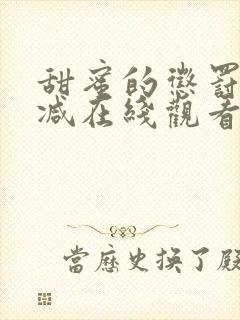 甜蜜的懲罰
減在綫觀看
當歷史換了殿